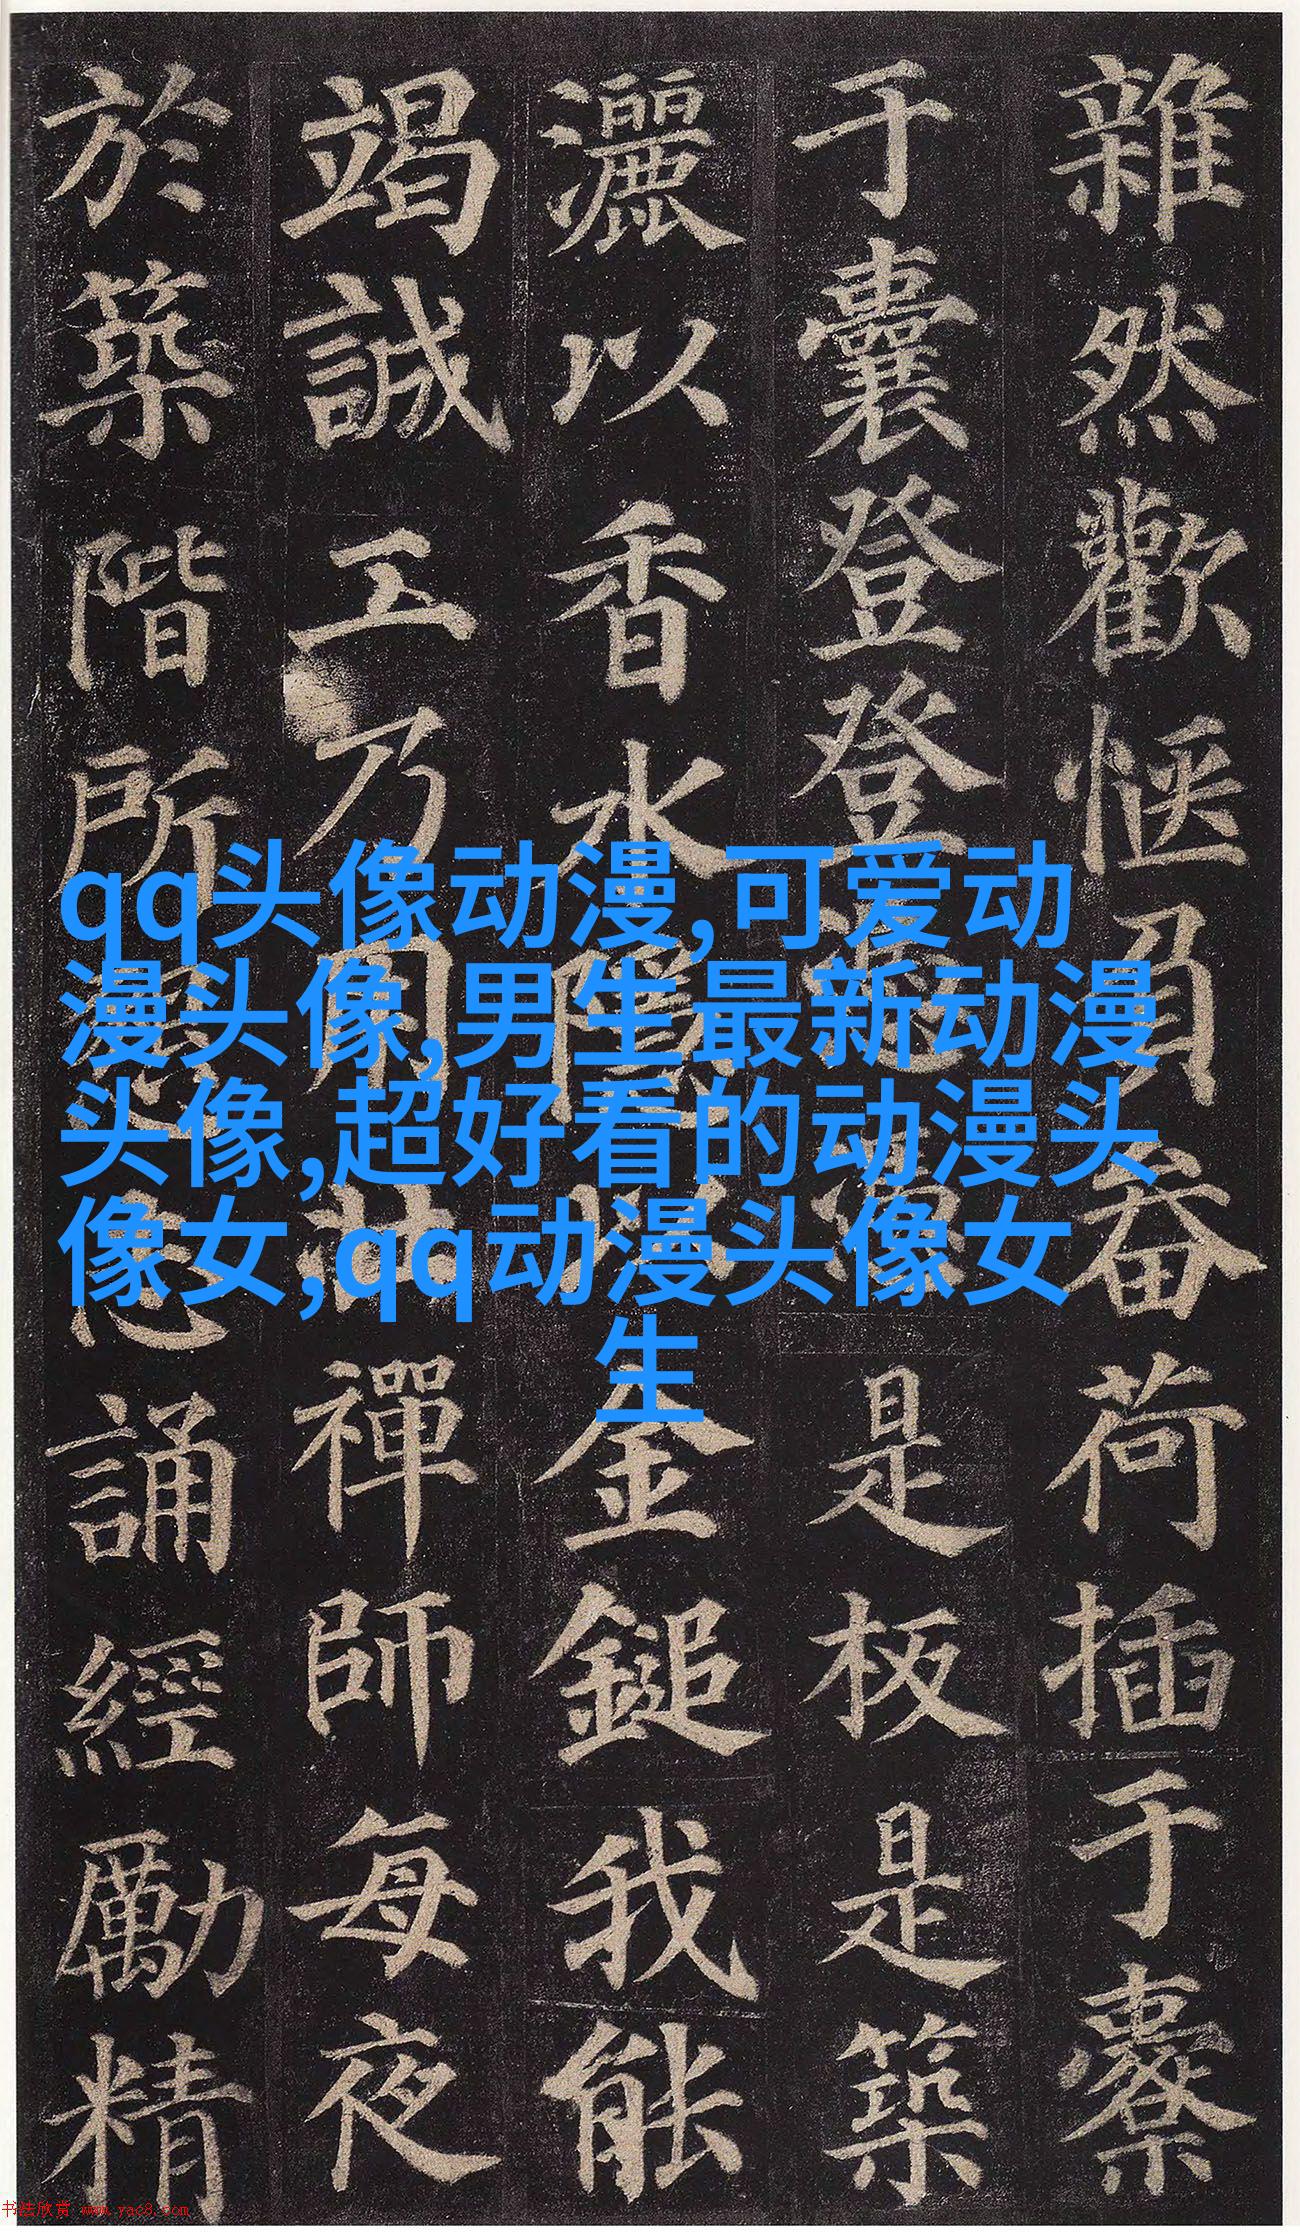 雜然歡愜負畚荷插于橐
于囊登登是板是築
灑以香水隱以金鎚我能
竭誠工乃用壯禪師每夜
於築階所懇志誦經勵精
qq头像动漫,可爱动
漫头像,男生最新动漫
头像,超好看的动漫头
像女,qq动漫头像女
生
书法欣赏 www.yac8.com